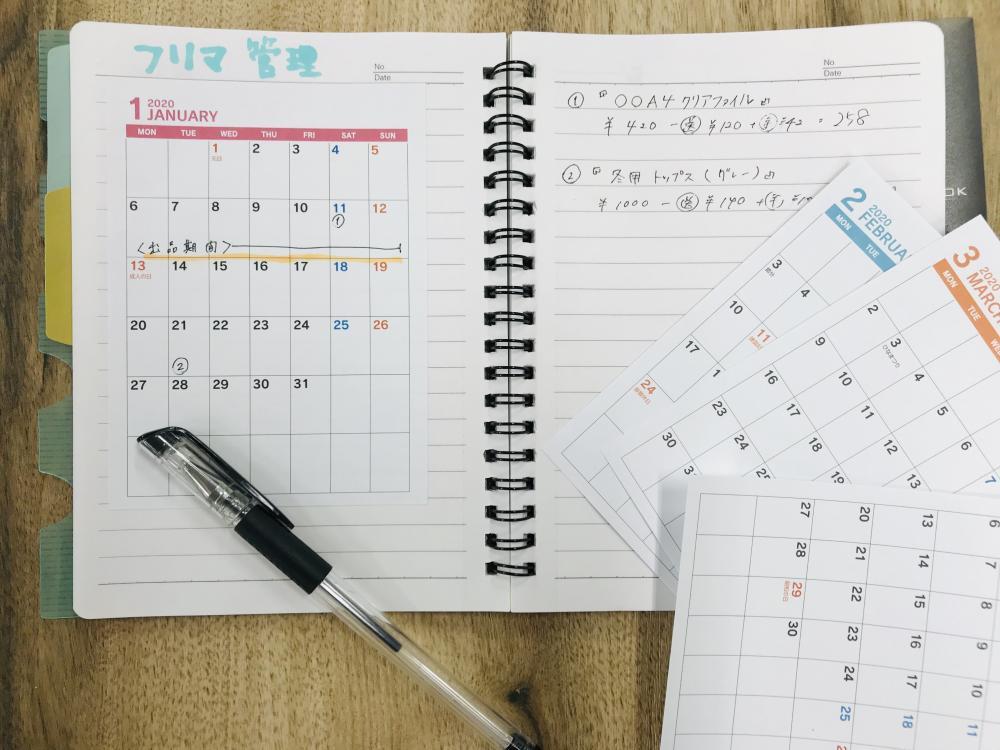 フリマ 管理
No
Date
1 2020
JANUARY
MON TUE WED THU FRI SAT SUN
1 2 3 4 5
元日
6 7 8 9 10 11 12
①
〈出品期間〉
13 14 15 16 17 18 19
成人の日
20 21 22 23 24 25 26
②
27 28 29 30 31
No
Date
① 『〇〇A4クリアファイル』
¥420 - 送 ¥120 + 手 ¥42 = 258
② 『冬用トップス(グレー)』
¥1000 - 送 ¥190 + 手
OK
2 2020
FEBRUA
MON TUE
3
4
10
11
17
1
24
3 2020
MARCH
MON TUE WE
2
3
ひなまつり
4
5
6
7
9
10
11
12
13
16
17
18
23
24
25
30
27 20 13 6
28 21 14 7
29 22 15
30 23 16 9
24 17 10
25 18 11